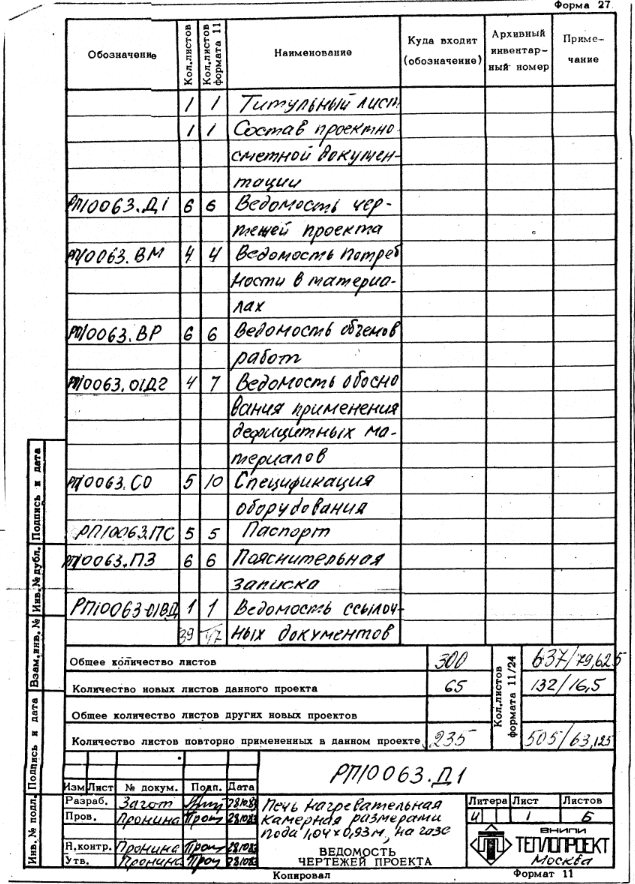 Форма 27
Обозначение Кол.листов Кол.листов формата 11 Наименование Куда входит (обозначение) Архивный инвентарный номер Примечание
1 1 Титульный лист
1 1 Состав проектно
сметной докумен-
тации
РП10063.Д1 6 6 Ведомость чер-
тежей проекта
РП10063.ВМ 4 4 Ведомость потреб
ности в материа-
лах
РП10063.ВР 6 6 Ведомость объемов
работ
РП10063.01Д2 4 7 Ведомость обосно
вания применения
дефицитных ма-
териалов
РП10063.СО 5 10 Спецификация
оборудования
РП10063.ПС 5 5 Паспорт
РП10063.ПЗ 6 6 Пояснительная
записка
РП10063-01ВД 1 1 Ведомость ссылоч-
39 47 ных документов
Общее количество листов 300 Кол.листов формата 11/24 637/79,625
Количество новых листов данного проекта 65 132/16,5
Общее количество листов других новых проектов
Количество листов повторно примененных в данном проекте 235 505/63,125
РП10063.Д1
Изм Лист № докум. Подп. Дата
Разраб. Загот
Пров. Пронина
Н.контр. Пронина
Утв. Пронина
Печь нагревательная
камерная размерами
пода 1,04х0,93м, на газе
ВЕДОМОСТЬ
ЧЕРТЕЖЕЙ ПРОЕКТА
Литера Лист Листов
И 1 6
ВНИПИ
ТЕПЛОПРОЕКТ
Москва
Копировал Формат 11
Инв.№ подл. Подпись и дата Взам.инв.№ Инв.№ дубл. Подпись и дата